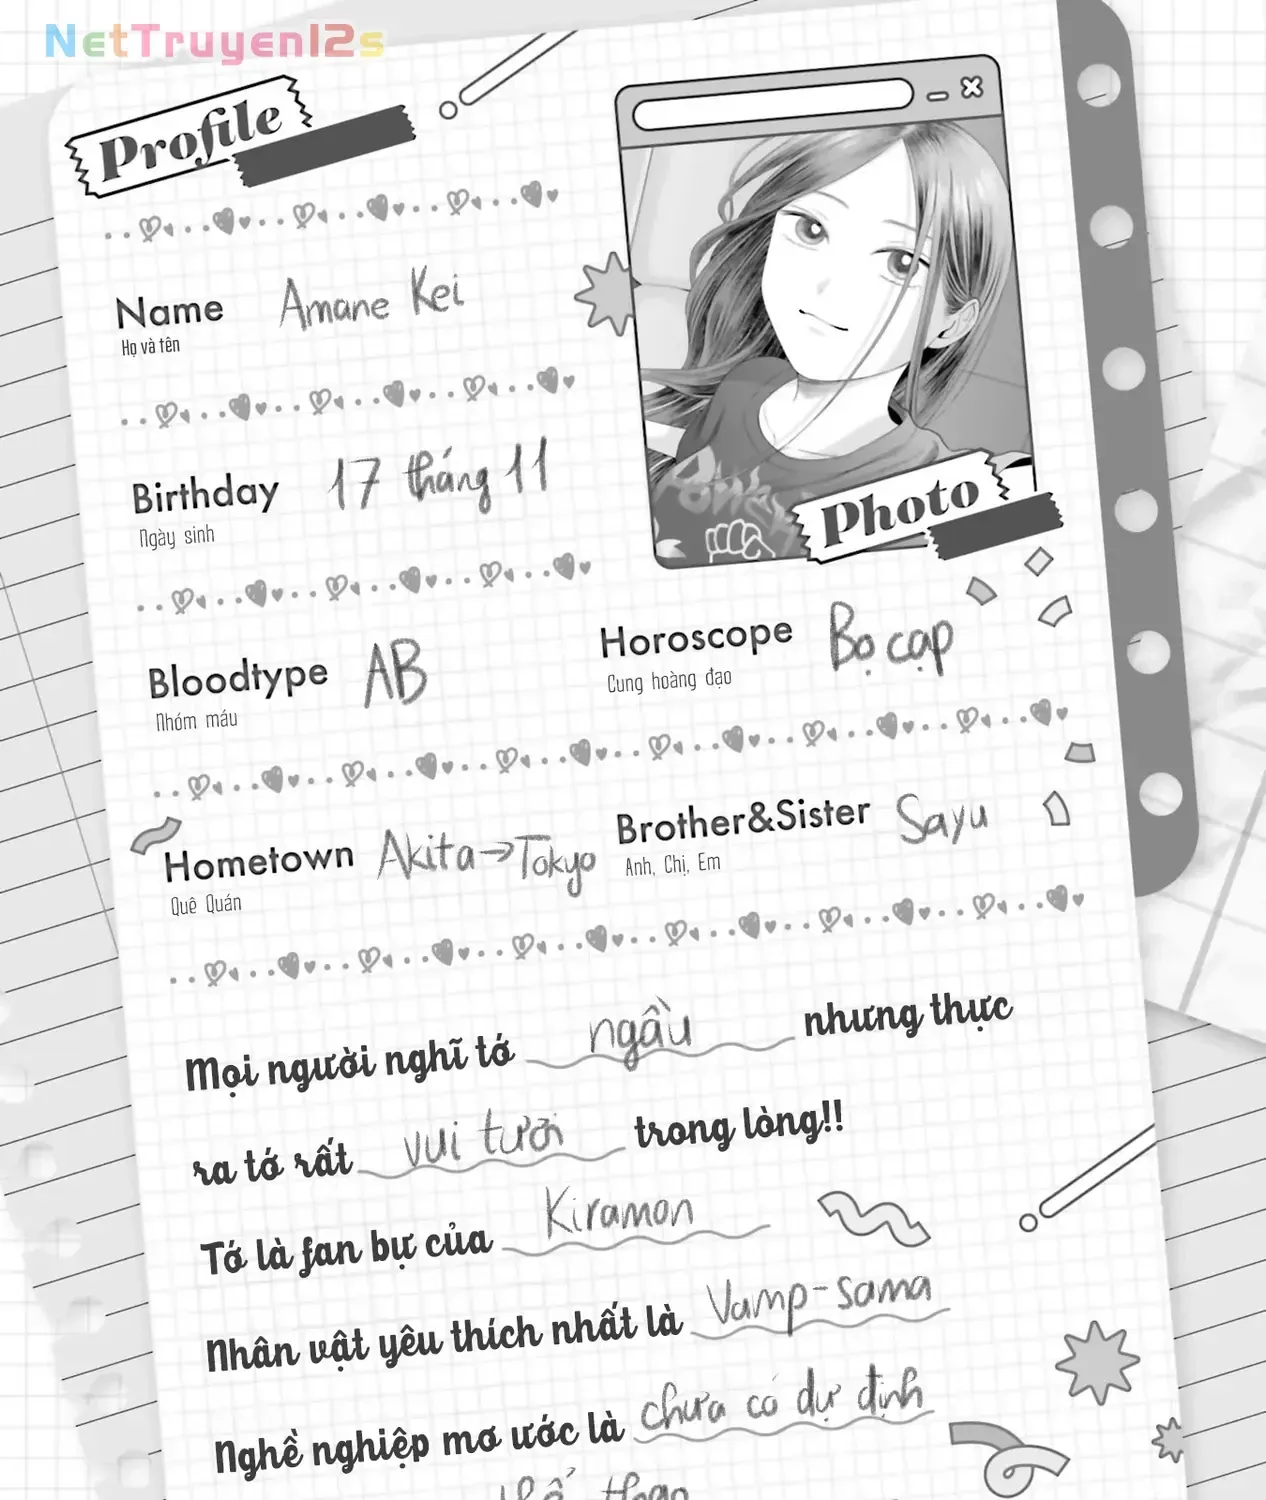 NetTruyen12s
Profile
Name Amane Kei
Họ và tên
Birthday 17 tháng 11
Ngày sinh
Photo
Bloodtype AB
Nhóm máu
Horoscope Bọ cạp
Cung hoàng đạo
Hometown Akita→Tokyo
Quê Quán
Brother&Sister Sayu
Anh, Chị, Em
Mọi người nghĩ tớ ngầu nhưng thực
ra tớ rất vui tươi trong lòng!!
Tớ là fan bự của Kiramon
Nhân vật yêu thích nhất là Vamp-sama
Nghề nghiệp mơ ước là chưa có dự định